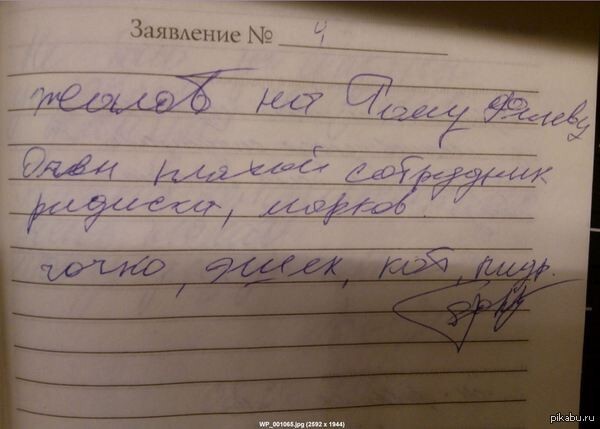 Заявление № 4
жалоб на Тому Филеву
Очен плахой сотрудник
ридиска, морков.
чочко, эшек, кот, пидр.
WP_001065.jpg (2592 x 1944)
pikabu.ru